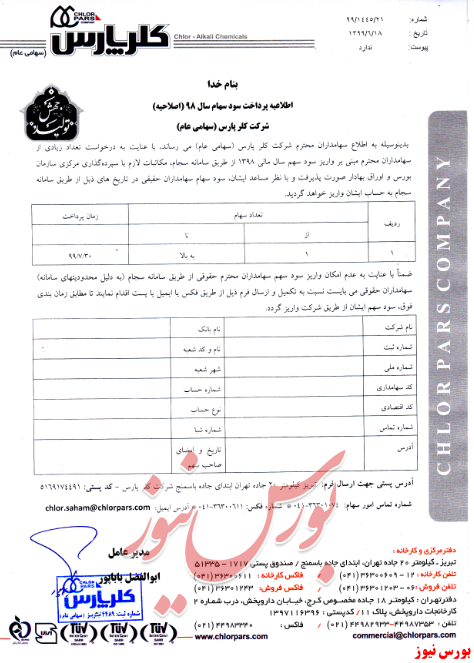 CHLOR PARS
کلر پارس
(سهامی عام)
Chlor - Alkali Chemicals
شماره: ۹۹/۱۴۴۵/۲۱
تاریخ: ۱۳۹۹/۶/۱۸
پیوست: ندارد
بنام خدا
اطلاعیه پرداخت سود سهام سال ۹۸ (اصلاحیه)
شرکت کلر پارس (سهامی عام)
جهش تولید
بدینوسیله به اطلاع سهامداران محترم شرکت کلر پارس (سهامی عام) می رساند، با عنایت به درخواست تعداد زیادی از
سهامداران محترم مبنی بر واریز سود سهم سال مالی ۱۳۹۸ از طریق سامانه سجام، مکاتبات لازم با سپرده‌گذاری مرکزی سازمان
بورس و اوراق بهادار صورت پذیرفت و با نظر مساعد ایشان، سود سهام سهامداران حقیقی در تاریخ های ذیل از طریق سامانه
سجام به حساب ایشان واریز خواهد گردید.
ردیف تعداد سهام زمان پرداخت
از تا
۱ ۱ به بالا ۹۹/۷/۳۰
ضمناً با عنایت به عدم امکان واریز سود سهم سهامداران محترم حقوقی از طریق سامانه سجام (به دلیل محدودیتهای سامانه)
سهامداران حقوقی می بایست نسبت به تکمیل و ارسال فرم ذیل از طریق فکس یا ایمیل یا پست اقدام نمایند تا مطابق زمان بندی
فوق، سود سهم ایشان از طریق شرکت واریز گردد.
نام شرکت نام بانک
شماره ثبت نام و کد شعبه
شماره ملی شهر شعبه
کد سهامداری شماره حساب
کد اقتصادی نوع حساب
شماره تماس شماره شبا
آدرس تاریخ و امضای
صاحب سهم
آدرس پستی جهت ارسال فرم: تبریز کیلومتر ۲۰ جاده تهران ابتدای جاده باسمنج شرکت کلر پارس - کد پستی: ۵۱۶۹۱۷۴۴۹۱
شماره تماس امور سهام: ۳۶۳۰۱۰۷۴-۰۴۱ شماره فکس: ۳۶۳۰۰۶۱۱-۰۴۱ آدرس ایمیل: chlor.saham@chlorpars.com
مدیر عامل
ابوالفضل باباپور
CHLOR PARS
کلر پارس
CHLOR PARS COMPANY
بورس نیوز
دفتر مرکزی و کارخانه:
تبریز، کیلومتر ۲۰ جاده تهران، ابتدای جاده باسمنج / صندوق پستی ۱۷۱۷-۵۱۳۳۵
تلفن کارخانه: ۱۲-۳۶۳۰۰۶۰۹ (۰۴۱) / فاکس کارخانه: ۳۶۳۰۰۶۱۱ (۰۴۱)
تلفن فروش: ۰۳-۳۶۳۰۱۲۰۶ (۰۴۱) / فاکس فروش: ۳۶۳۰۱۲۴۳ (۰۴۱)
دفتر تهران: کیلومتر ۱۸ جاده مخصوص کرج، خیابان داروپخش، درب شماره ۲
کارخانجات داروپخش، پلاک ۱۱/ کدپستی: ۱۳۹۷۱۱۶۳۹۶
تلفن: ۴۴۹۸۷۳۵۳-۴۴۹۸۲۹۳۳ (۰۲۱) / فاکس: ۴۴۹۸۳۳۴۰ (۰۲۱)
www.chlorpars.com commercial@chlorpars.com
TÜV TÜV TÜV
بورس نیوز